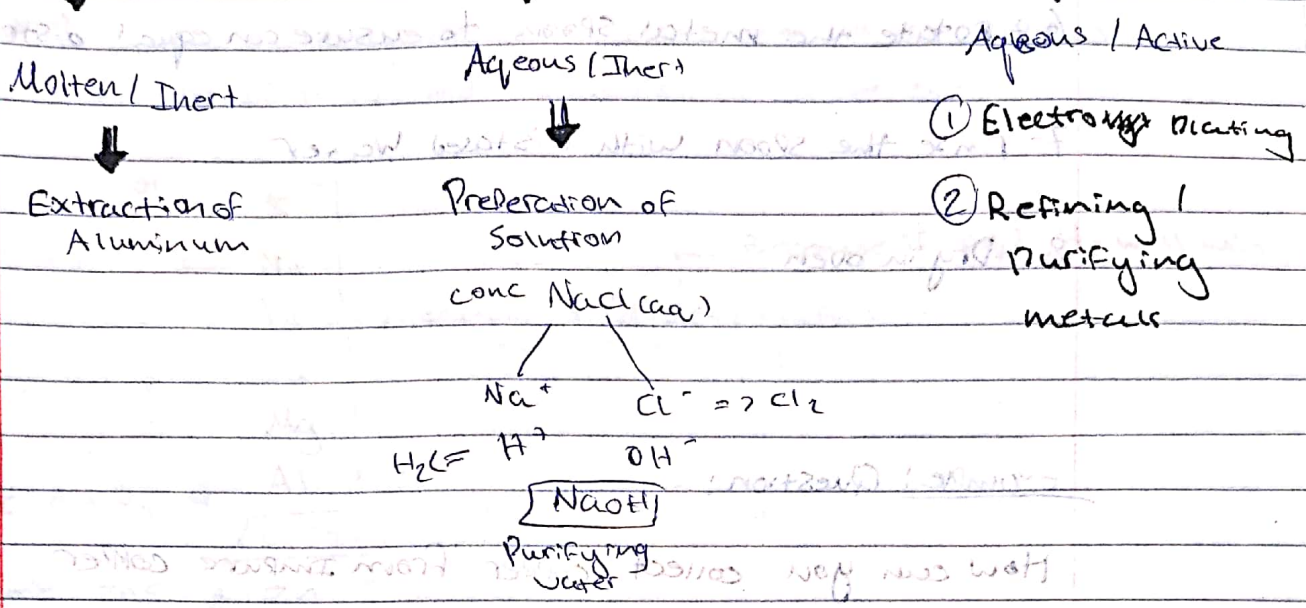 Molten / Inert
Extraction of
Aluminum
Aqeous / Inert
Preperation of
Solution
conc NaCl (aq)
Na⁺ Cl⁻ => Cl₂
H₂ <= H⁺ OH⁻
NaOH
Purifying
water
Aqeous / Active
① Electro Plating
② Refining /
purifying
metals